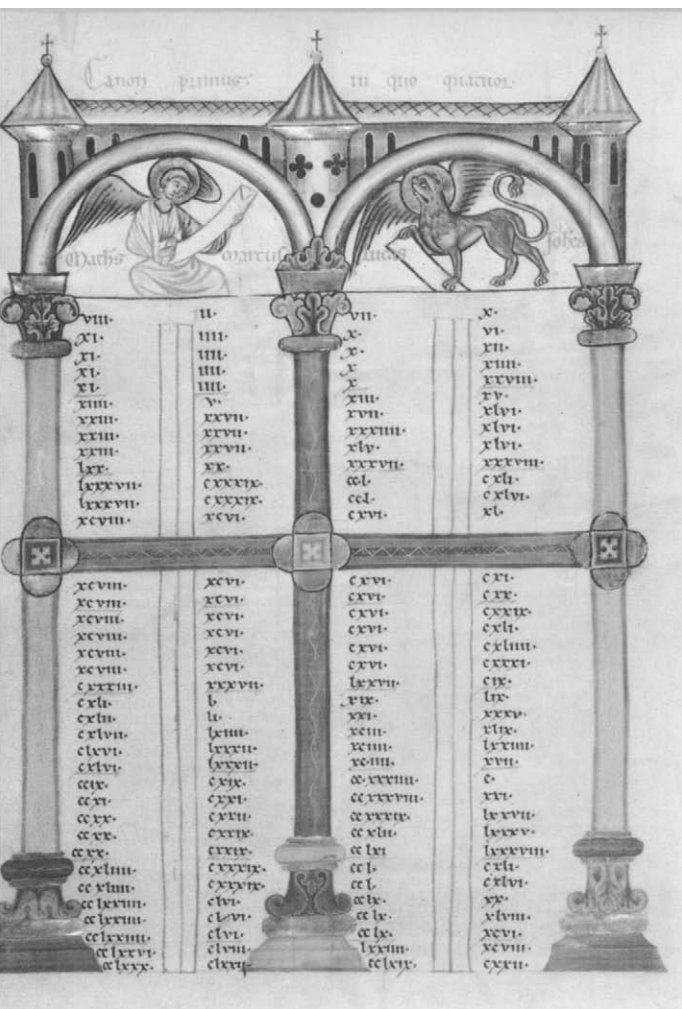 Canon primus. in quo quatuor.
Matheus marcus lucas Johes
viii· ii· vii· x·
xi· iiii· x· vi·
xi· iiii· x· xii·
xi· iiii· x xiiii·
xi· iiii· x xxviii·
xiiii· v· xiii· xv·
xxiii· xxvii· xvii· xlvi·
xxiii· xxvii· xxxiiii· xlvi·
xxiii· xxvii· xlv· xlvi·
lxx· xx· xxxvii· xxxviii·
lxxxvii· cxxxix· ccl· cxli·
lxxxvii· cxxxix· ccl· cxlvi·
xcviii· xcvi· cxvi· xl·
xcviii· xcvi· cxvi· cxi·
xcviii· xcvi· cxvi· cxx·
xcviii· xcvi· cxvi· cxxix·
xcviii· xcvi· cxvi· cxli·
xcviii· xcvi· cxvi· cxliiii·
xcviii· xcvi· cxvi· cxxxi·
cxxxiii· xxxvii· lxxvii· cix·
cxli· l· xix· lix·
cxlii· li· xxi· xxxv·
cxlvii· lxiiii· xciii· xlix·
clxvi· lxxxii· xciiii· lxxiiii·
cxlvi· lxxxii· xciiii· xvii·
ccix· cxix· ccxxxiiii· c·
ccxi· cxxi· ccxxxviii· xxi·
ccxx· cxxii· ccxxxix· lxxvii·
ccxx· cxxix· ccxlii· lxxxv·
ccxx· cxxix· cclxi lxxxviii·
ccxliiii· cxxxix· ccl· cxli·
ccxliiii· cxxxix· ccl· cxlvi·
cclxxiiii· clvi· cclx· xx·
cclxxiiii· clvi· cclx· xlviii·
cclxxiiii· clvi· cclx· xcvi·
cclxxvi· clviii· lxxiiii· xcviii·
cclxxx· clxxii· cclxix· cxxii·